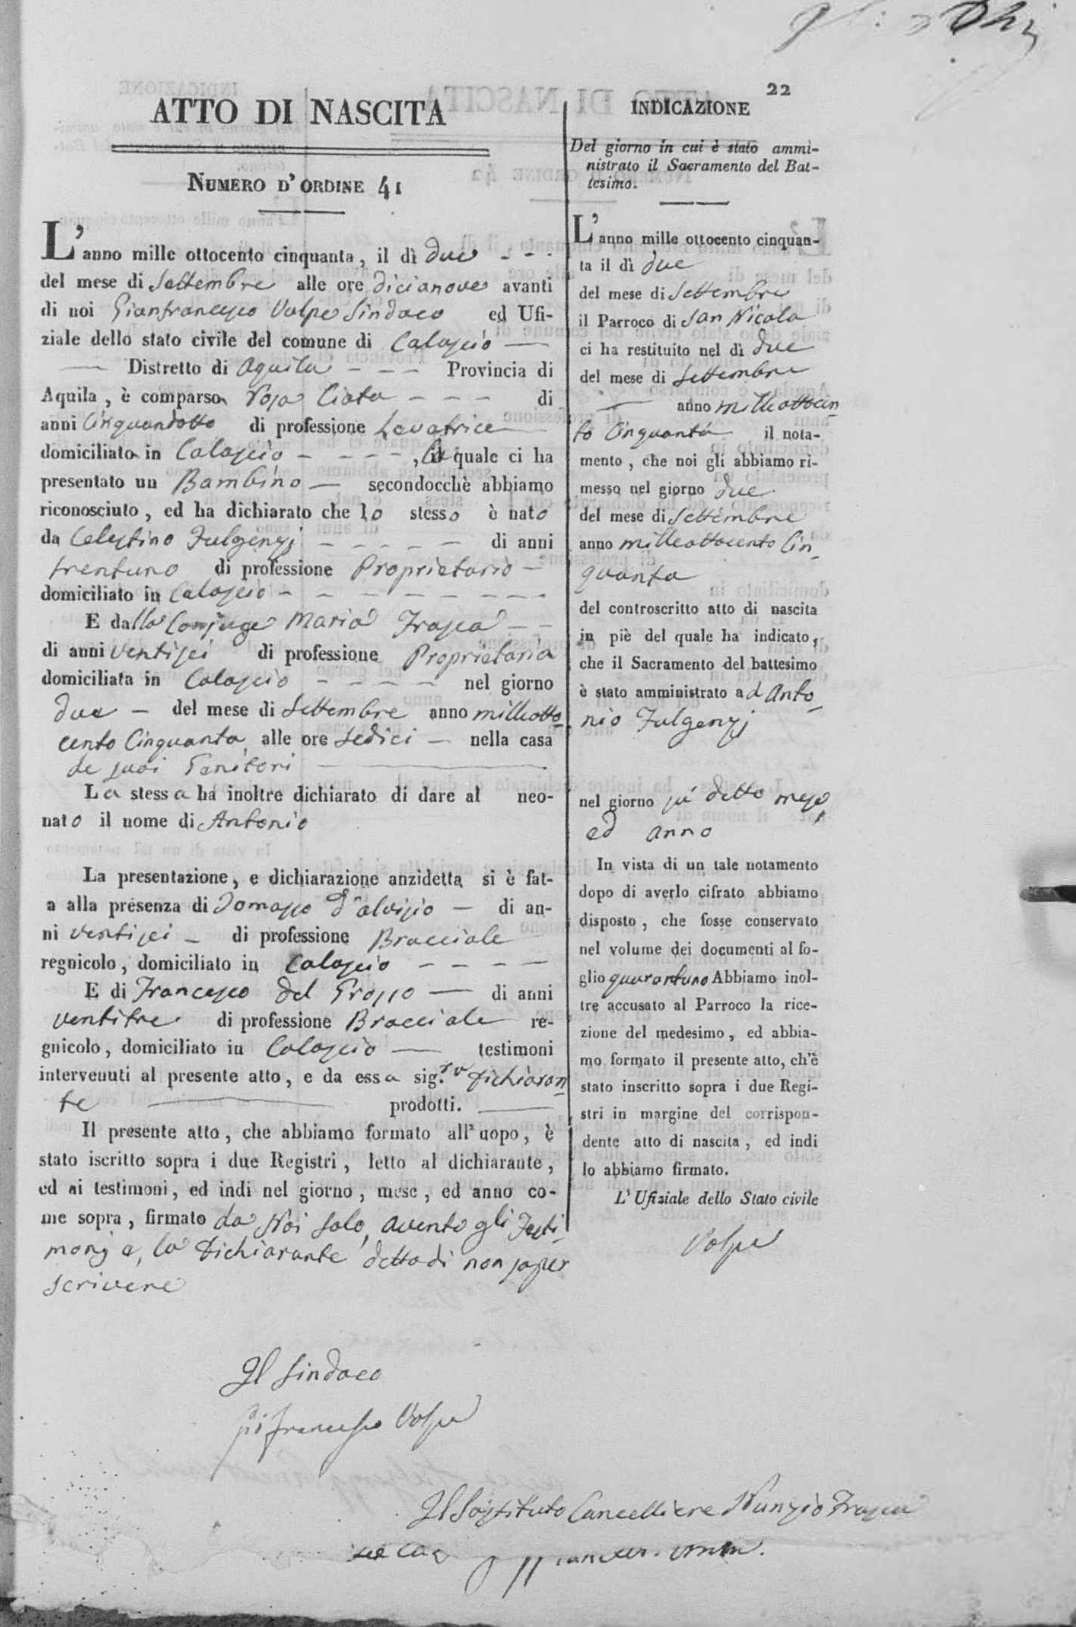 22
ATTO DI NASCITA
NUMERO D'ORDINE 41
L'anno mille ottocento cinquanta, il dì due
del mese di Settembre alle ore dicianove avanti
di noi Gianfrancesco Volpe Sindaco ed Ufi-
ziale dello stato civile del comune di Calascio
Distretto di Aquila Provincia di
Aquila, è comparsa Rosa Ciata di
anni Cinquandotto di professione Levatrice
domiciliata in Calascio, la quale ci ha
presentato un Bambino secondocchè abbiamo
riconosciuto, ed ha dichiarato che lo stesso è nato
da Celestino Fulgenzj di anni
trentuno di professione Proprietario
domiciliato in Calascio
E dalla Conjuge Maria Frasca
di anni ventisei di professione Proprietaria
domiciliata in Calascio nel giorno
due del mese di Settembre anno milleotto-
cento Cinquanta alle ore sedici nella casa
de suoi Genitori
La stessa ha inoltre dichiarato di dare al neo-
nato il nome di Antonio
La presentazione, e dichiarazione anzidetta si è fat-
a alla presenza di Tomasso d'aloisio di an-
ni ventisei di professione Bracciale
regnicolo, domiciliato in Calascio
E di Francesco del Grosso di anni
ventitre di professione Bracciale re-
gnicolo, domiciliato in Calascio testimoni
intervenuti al presente atto, e da essa sig.ra dichiaran-
te prodotti.
Il presente atto, che abbiamo formato all'uopo, è
stato iscritto sopra i due Registri, letto al dichiarante,
ed ai testimoni, ed indi nel giorno, mese, ed anno co-
me sopra, firmato da Noi solo, avento gli Testi-
monj e, la Dichiarante detto di non saper
scrivere
Il Sindaco
Volpe
Il Sostituto Cancelliere Nunzio Frasca
INDICAZIONE
Del giorno in cui è stato ammi-
nistrato il Sacramento del Bat-
tesimo.
L'anno mille ottocento cinquan-
ta il dì due
del mese di Settembre
il Parroco di San Nicola
ci ha restituito nel dì due
del mese di Settembre
anno milleottocen
to Cinquanta il nota-
mento, che noi gli abbiamo ri-
messo nel giorno due
del mese di Settembre
anno milleottocento Cin-
quanta
del controscritto atto di nascita
in piè del quale ha indicato,
che il Sacramento del battesimo
è stato amministrato ad Anto-
nio Fulgenzj
nel giorno su detto mese,
ed anno
In vista di un tale notamento
dopo di averlo cifrato abbiamo
disposto, che fosse conservato
nel volume dei documenti al fo-
glio quarantuno Abbiamo inol-
tre accusato al Parroco la rice-
zione del medesimo, ed abbia-
mo formato il presente atto, ch'è
stato inscritto sopra i due Regi-
stri in margine del corrispon-
dente atto di nascita, ed indi
lo abbiamo firmato.
L'Ufiziale dello Stato civile
Volpe